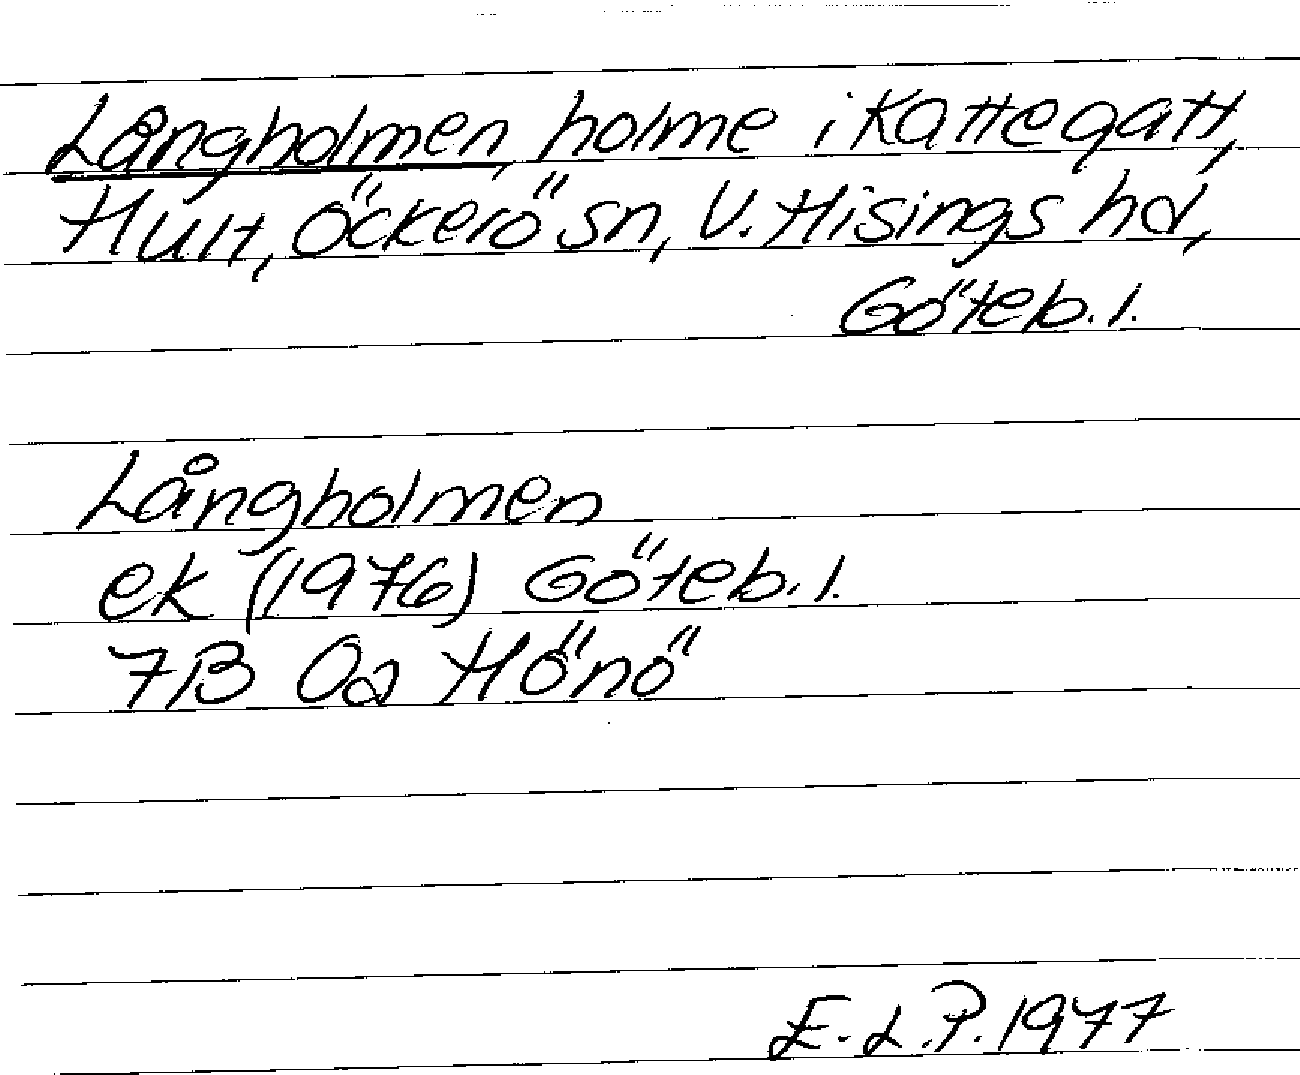 Långholmen, holme i Kattegatt,
Hult, Öckerö sn, V. Hisings hd,
Göteb. l.
Långholmen
ek (1976) Göteb. l.
7B 0a Hönö
E.L.P. 1977